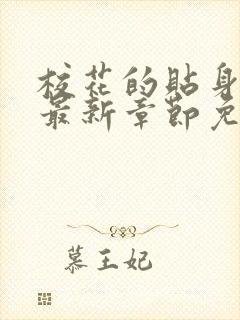 校花的贴身
最新章節免
慕王妃